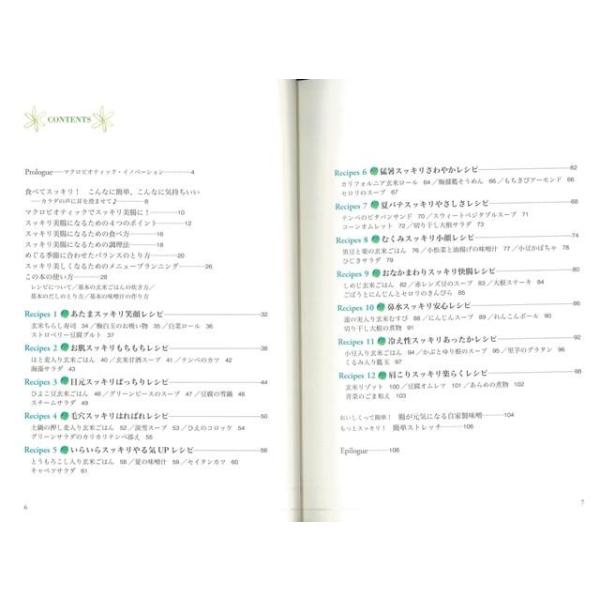 CONTENTS
Prologue──マクロビオティック・イノベーション──4
食べてスッキリ! こんなに簡単、こんなに気持ちいい
──カラダの声に耳を澄ませて♪──8
マクロビオティックでスッキリ美腸に!──10
スッキリ美腸になるための4つのポイント──12
スッキリ美腸になるための食べ方──16
スッキリ美腸になるための調理法──18
めぐる季節に合わせたバランスのとり方──20
スッキリ美しくなるためのメニュープランニング──26
この本の使い方──28
レシピについて/基本の玄米ごはんの炊き方/
基本のだしのとり方/基本の味噌汁の作り方
Recipes 1 あたまスッキリ笑顔レシピ──32
玄米ちらし寿司 34/梅白玉のお吸い物 35/白菜ロール 36
ストロベリー豆腐グルト 37
Recipes 2 お肌スッキリもちもちレシピ──38
はと麦入り玄米ごはん 40/玄米甘酒スープ 41/テンペのカツ 42
海藻サラダ 43
Recipes 3 目元スッキリぱっちりレシピ──44
ひよこ豆玄米ごはん 46/グリーンピースのスープ 47/豆腐の雪鍋 48
スチームサラダ 49
Recipes 4 毛穴スッキリはればれレシピ──50
土鍋の押し麦入り玄米ごはん 52/淡雪スープ 53/ひえのコロッケ 54
グリーンサラダのカリカリテンペ添え 55
Recipes 5 いらいらスッキリやる気UPレシピ──56
とうもろこし入り玄米ごはん 58/夏の味噌汁 59/セイタンカツ 60
キャベツサラダ 61
6
Recipes 6 猛暑スッキリさわやかレシピ──62
カリフォルニア玄米ロール 64/梅醤藍そうめん 66/もちきびアーモンド 68
セロリのスープ 67
Recipes 7 夏バテスッキリやさしさレシピ──68
テンペのピタパンサンド 70/スウィートベジタブルスープ 71
コーンオムレット 72/切り干し大根サラダ 73
Recipes 8 むくみスッキリ小顔レシピ──74
黒豆と栗の玄米ごはん 76/小松菜と油揚げの味噌汁 77/小豆かぼちゃ 78
ひじきサラダ 79
Recipes 9 おなかまわりスッキリ快腸レシピ──80
しめじ玄米ごはん 82/赤レンズ豆のスープ 83/大根ステーキ 84
ごぼうとにんじんとセロリのきんぴら 85
Recipes 10 鼻水スッキリ安心レシピ──86
蓮の実入り玄米むすび 88/にんじんスープ 89/れんこんボール 90
切り干し大根の煮物 91
Recipes 11 冷え性スッキリあったかレシピ──92
小豆入り玄米ごはん 94/かぶとゆり根のスープ 95/里芋のグラタン 96
くるみ入り蒸玉 97
Recipes 12 肩こりスッキリ楽らくレシピ──98
玄米リゾット 100/豆腐オムレツ 102/あらめの煮物 103
青菜のごま和え 103
おいしくって簡単! 腸が元気になる自家製味噌──104
もっとスッキリ! 簡単ストレッチ──106
Epilogue──108
7